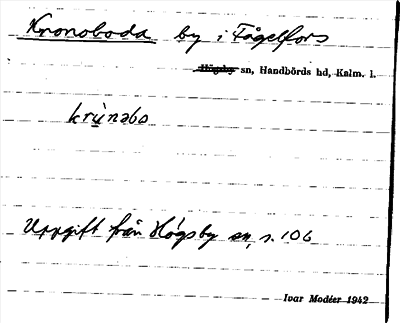 Kronoboda by i Fågelfors
Högsby sn, Handbörds hd, Kalm. l.
krùnəbo
Uppgift från Högsby sn, s. 106
Ivar Modéer 1942